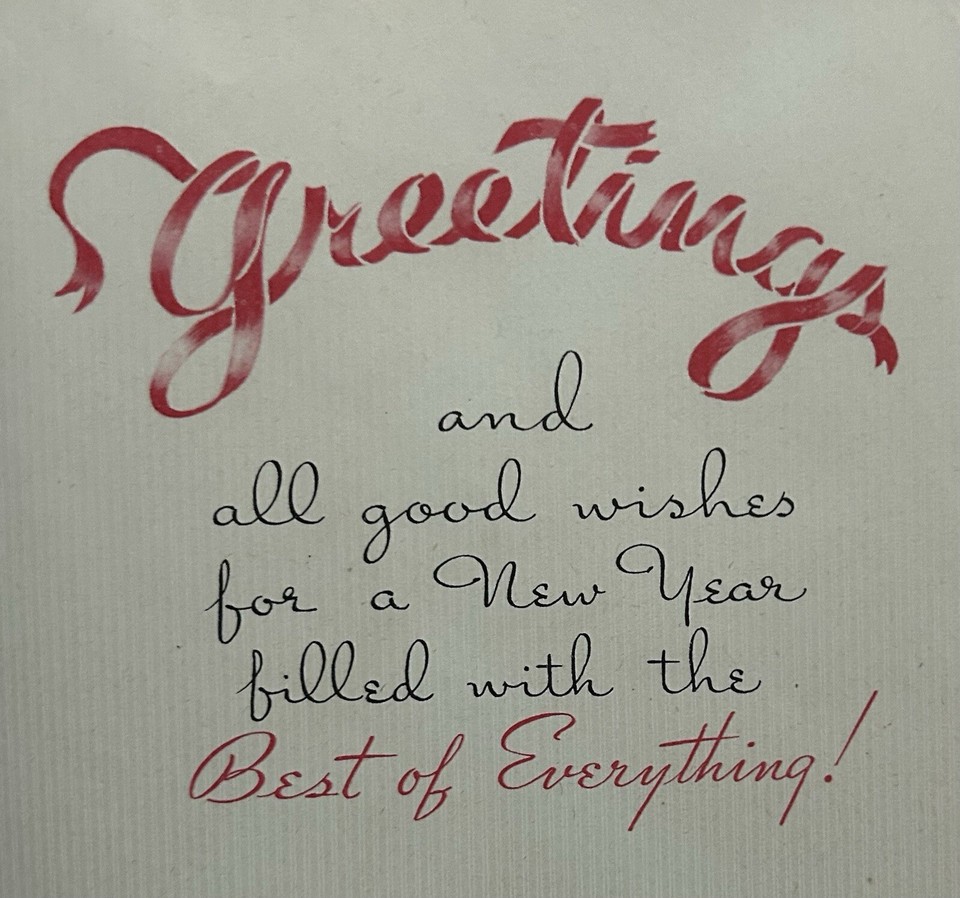 Greetings
and
all good wishes
for a New Year
filled with the
Best of Everything!